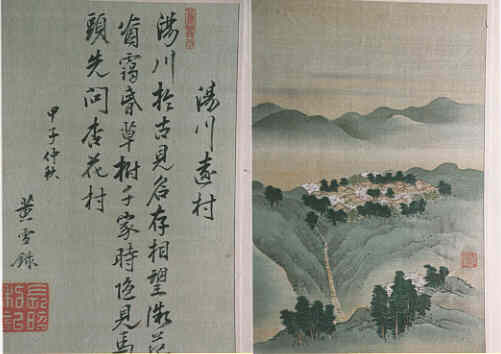 湯川遠村
湯川於古見名存相望微茫
靄昏草樹千家時隐見馬
頭先問杏花村
甲子仲秋
黄雪